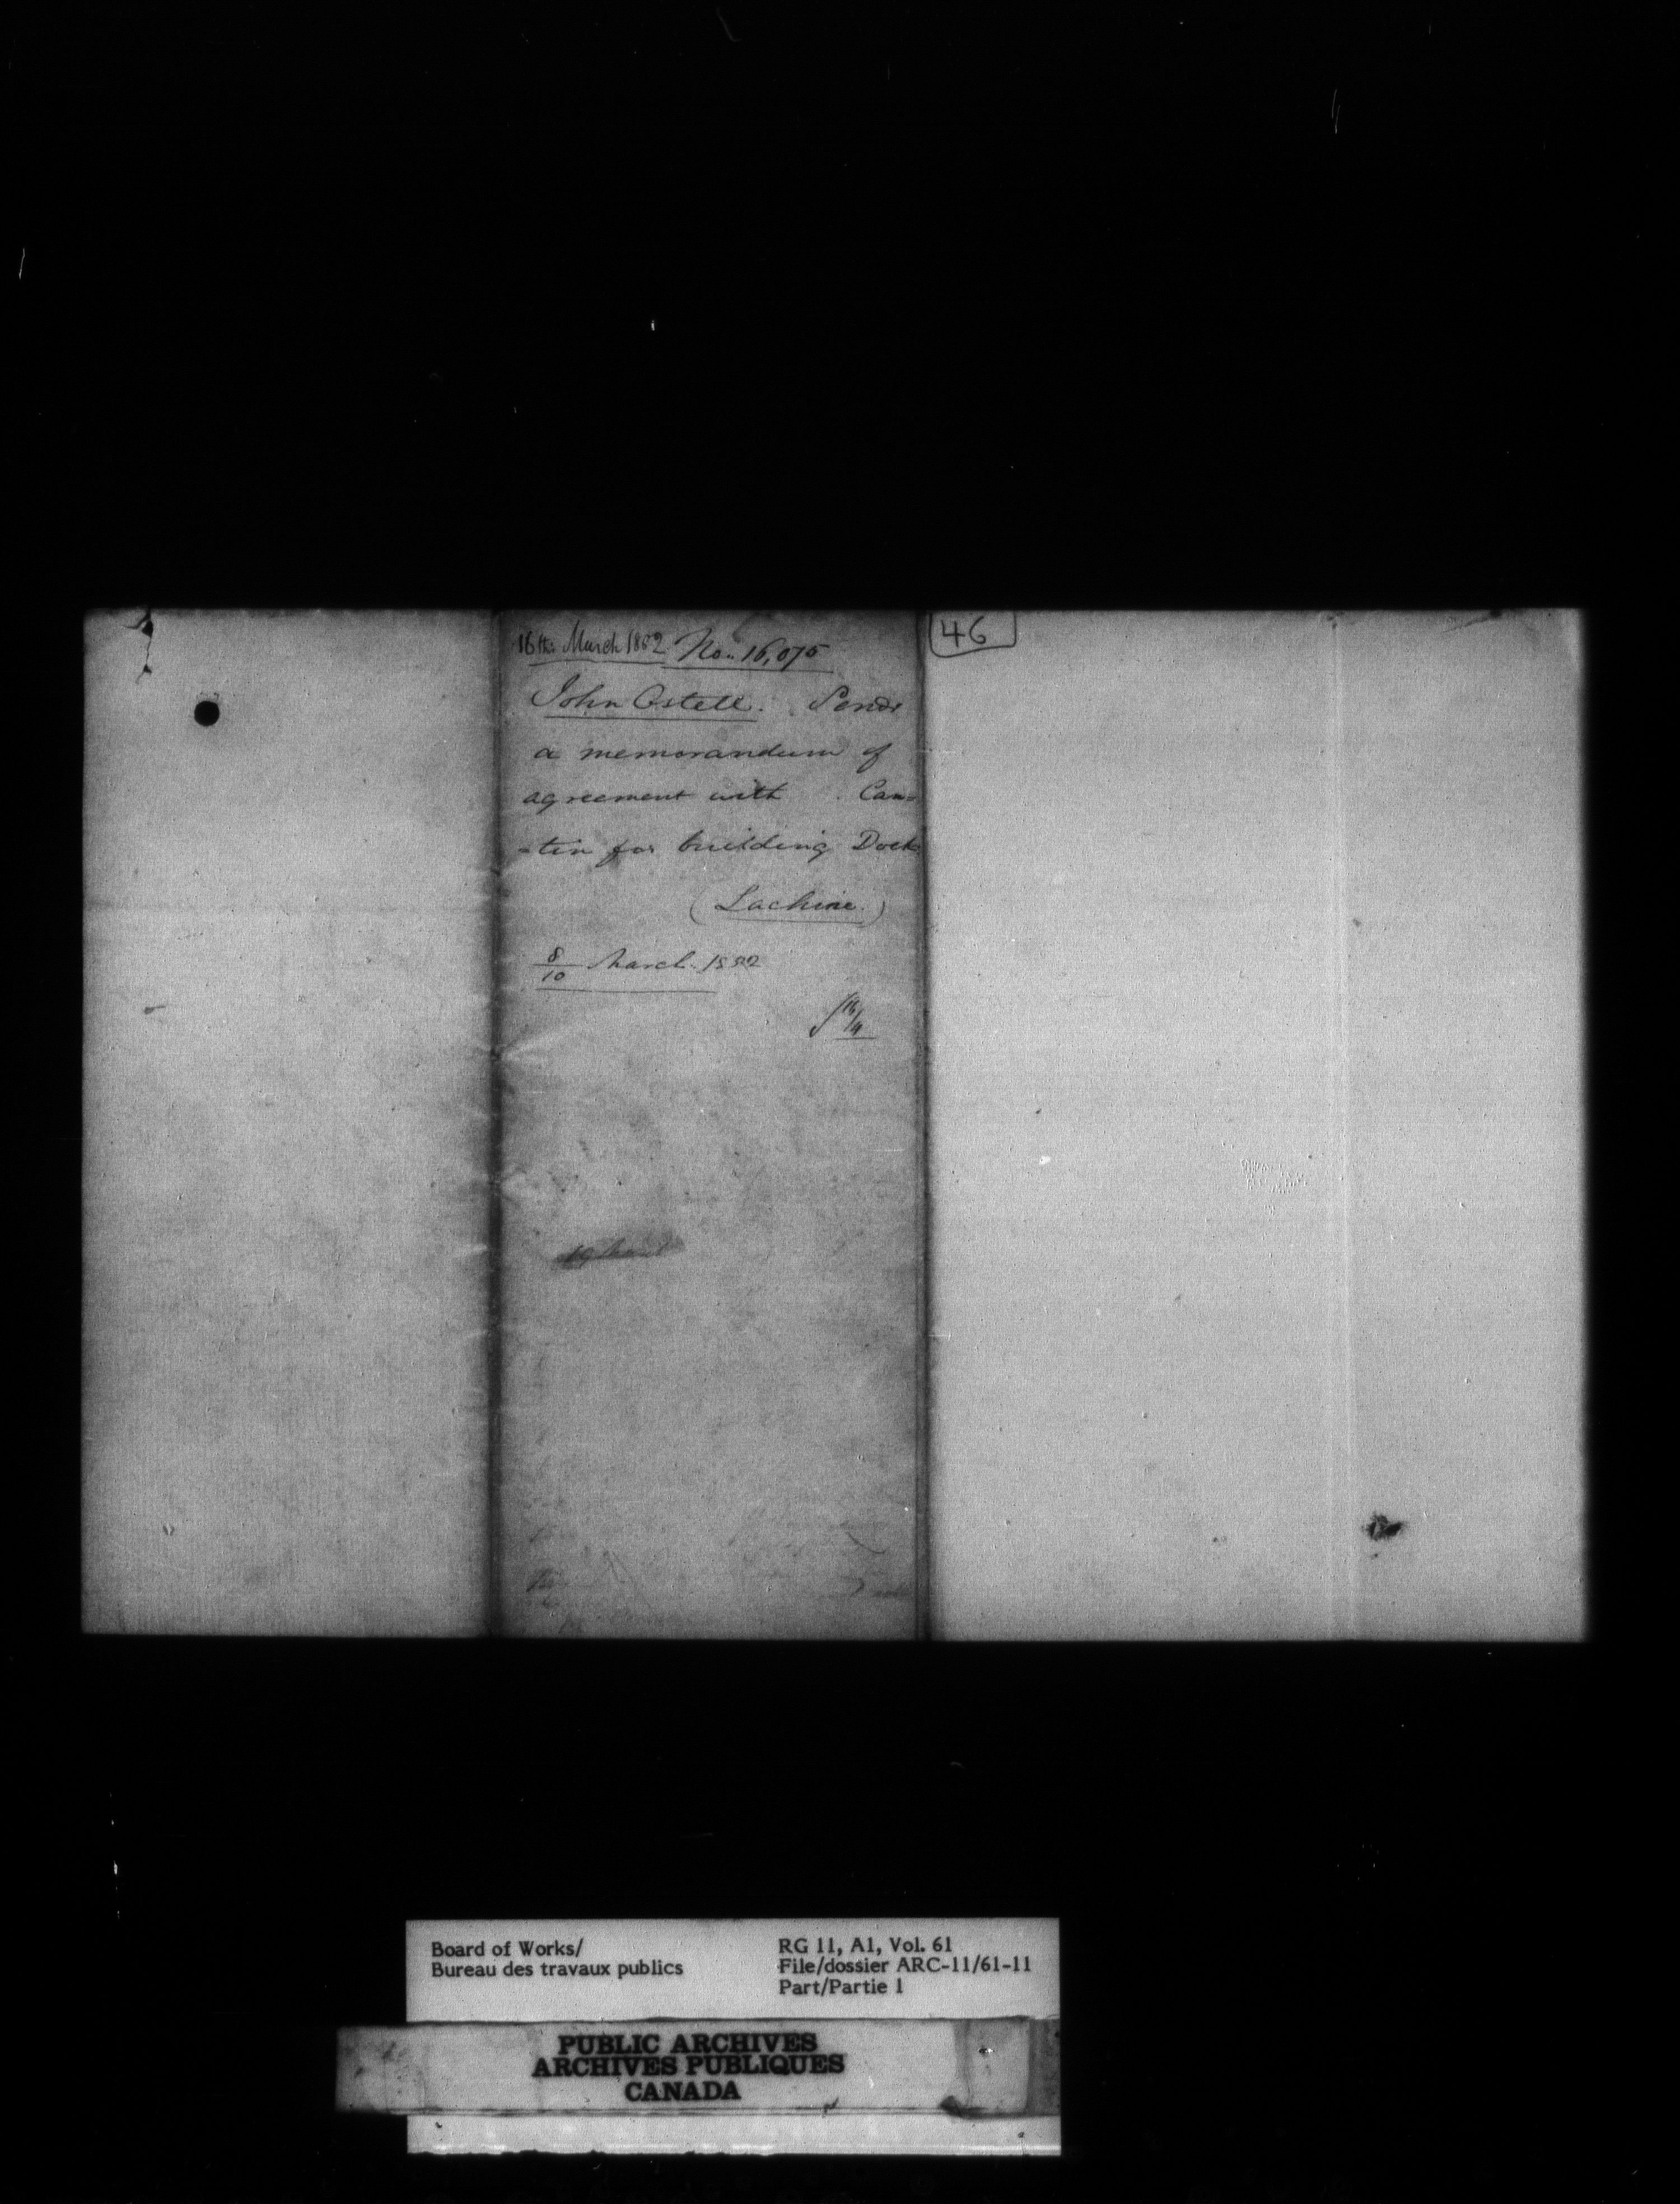 16th. March 1852 No. 16,075
John Ostell. Sends
a memorandum of
agreement with . Can=
=tin for building Dock
(Lachine.)
8/10 March. 1852
46
Board of Works/
Bureau des travaux publics
RG 11, A1, Vol. 61
File/dossier ARC-11/61-11
Part/Partie 1
PUBLIC ARCHIVES
ARCHIVES PUBLIQUES
CANADA